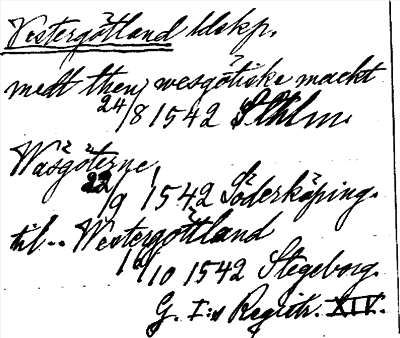 Vestergötland ldskp.
medt then wesgötiske mackt
24/8 1542 Sthlm.
Wäsgöterne
22/9 1542 Söderköping.
til.. Westergöttland
12/10 1542 Stegeborg.
G. I:s Registr. XIV.